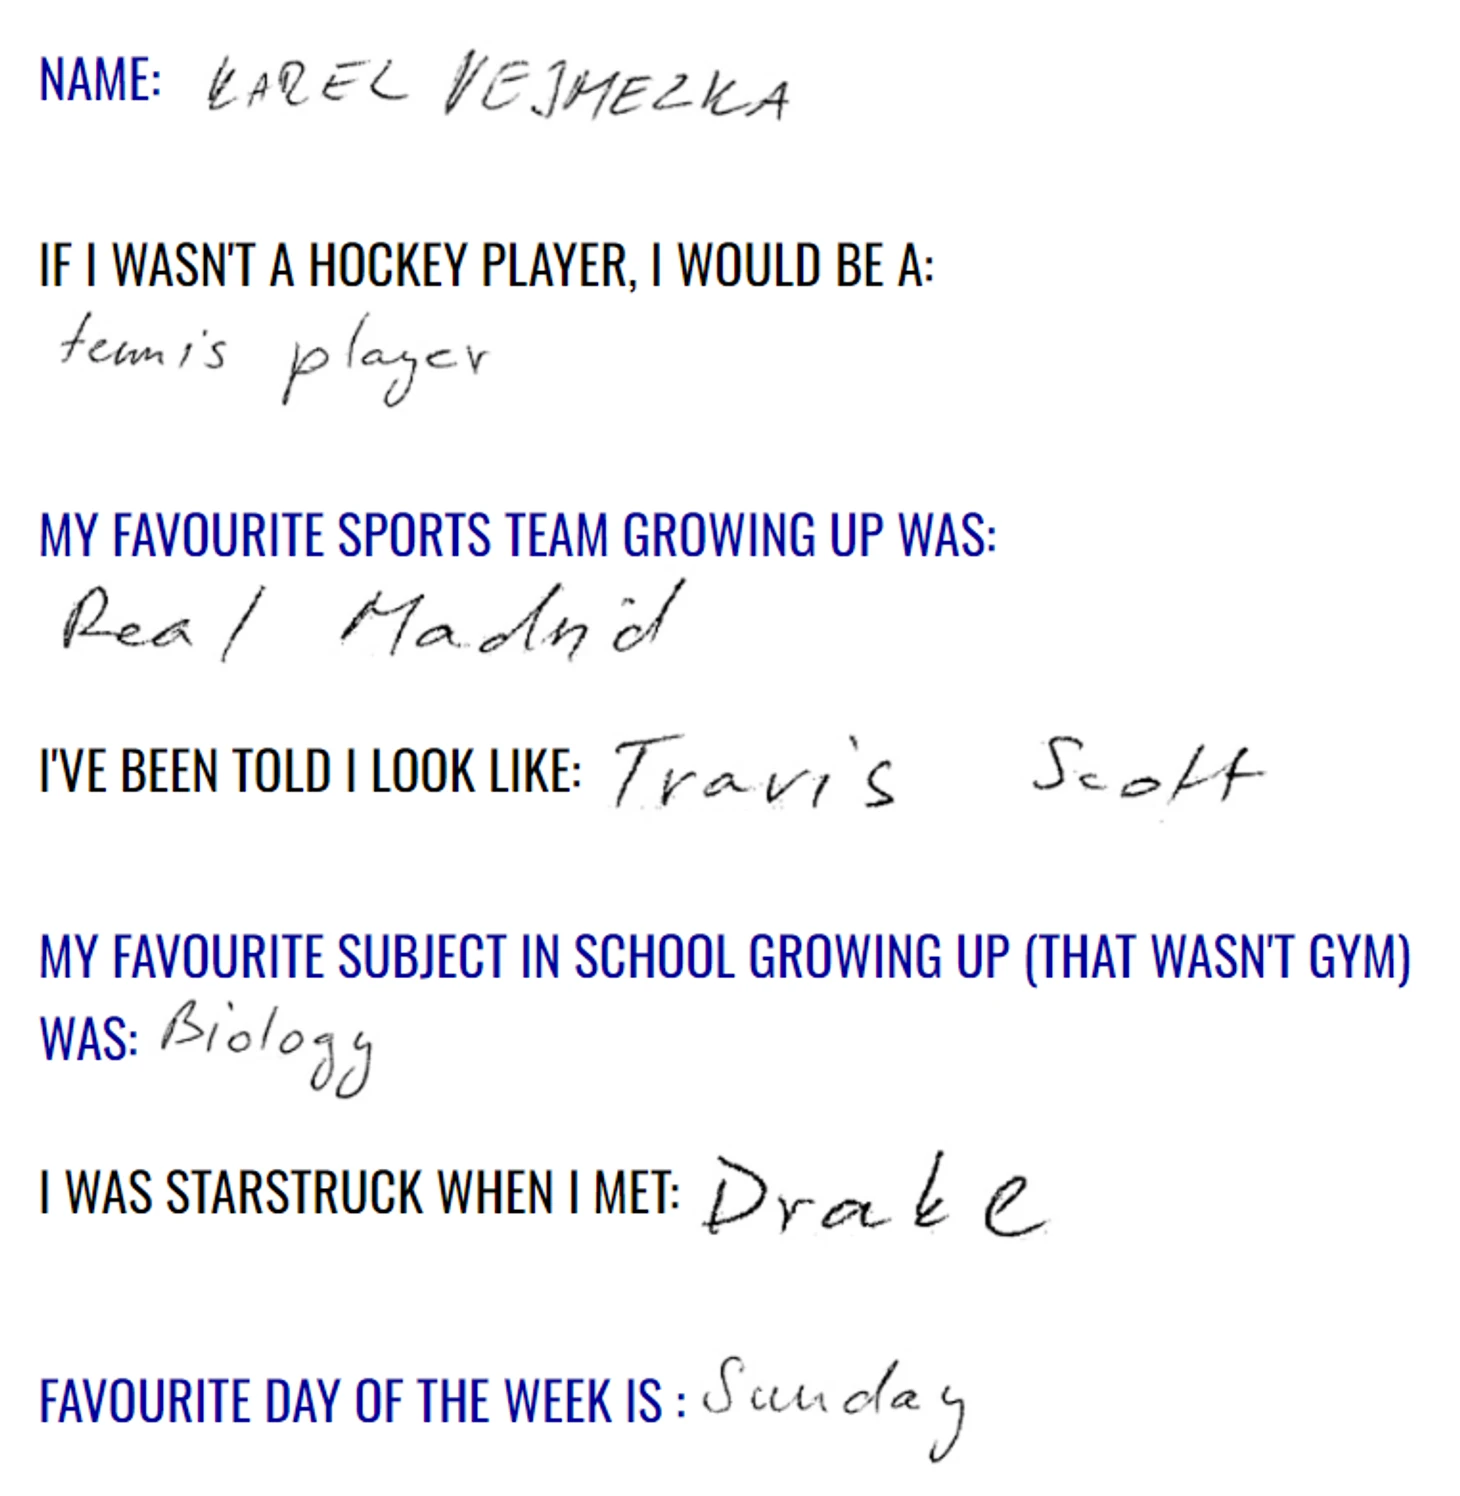 NAME: KAREL VEJMELKA
IF I WASN'T A HOCKEY PLAYER, I WOULD BE A:
tennis player
MY FAVOURITE SPORTS TEAM GROWING UP WAS:
Real Madrid
I'VE BEEN TOLD I LOOK LIKE: Travis Scott
MY FAVOURITE SUBJECT IN SCHOOL GROWING UP (THAT WASN'T GYM)
WAS: Biology
I WAS STARSTRUCK WHEN I MET: Drake
FAVOURITE DAY OF THE WEEK IS : Sunday